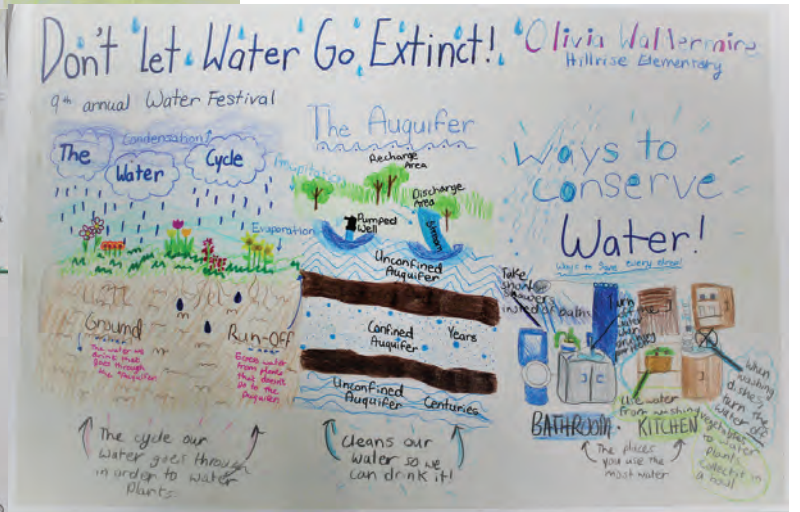 Don't Let Water Go Extinct!
Olivia Wallermire
Hillrise Elementary
9th annual Water Festival
Condensation
The
Water
Cycle
Precipitation
Evaporation
Ground
Water
The water we
drink that
goes through
the Auquifer
Run-Off
water
Excess water
from plants
that doesn't
go to the
Auquifer
The cycle our
water goes through
in order to water
Plants.
The Auquifer
Recharge
Area
Discharge
Area
Pumped
Well
Stream
Unconfined
Auquifer
Confined
Auquifer
Years
Unconfined
Auquifer
Centuries
Cleans our
water so we
can drink it!
Ways to
conserve
Water!
Ways to Save every drop!
Take
short
showers
instead of baths
Turn
off the
water
when
brushing
your teeth
When
washing
dishes,
turn the
water off
Use water
from washing vegetables
to water
Plants.
Collect it in
a bowl
BATHROOM · KITCHEN
The places
you use the
most water